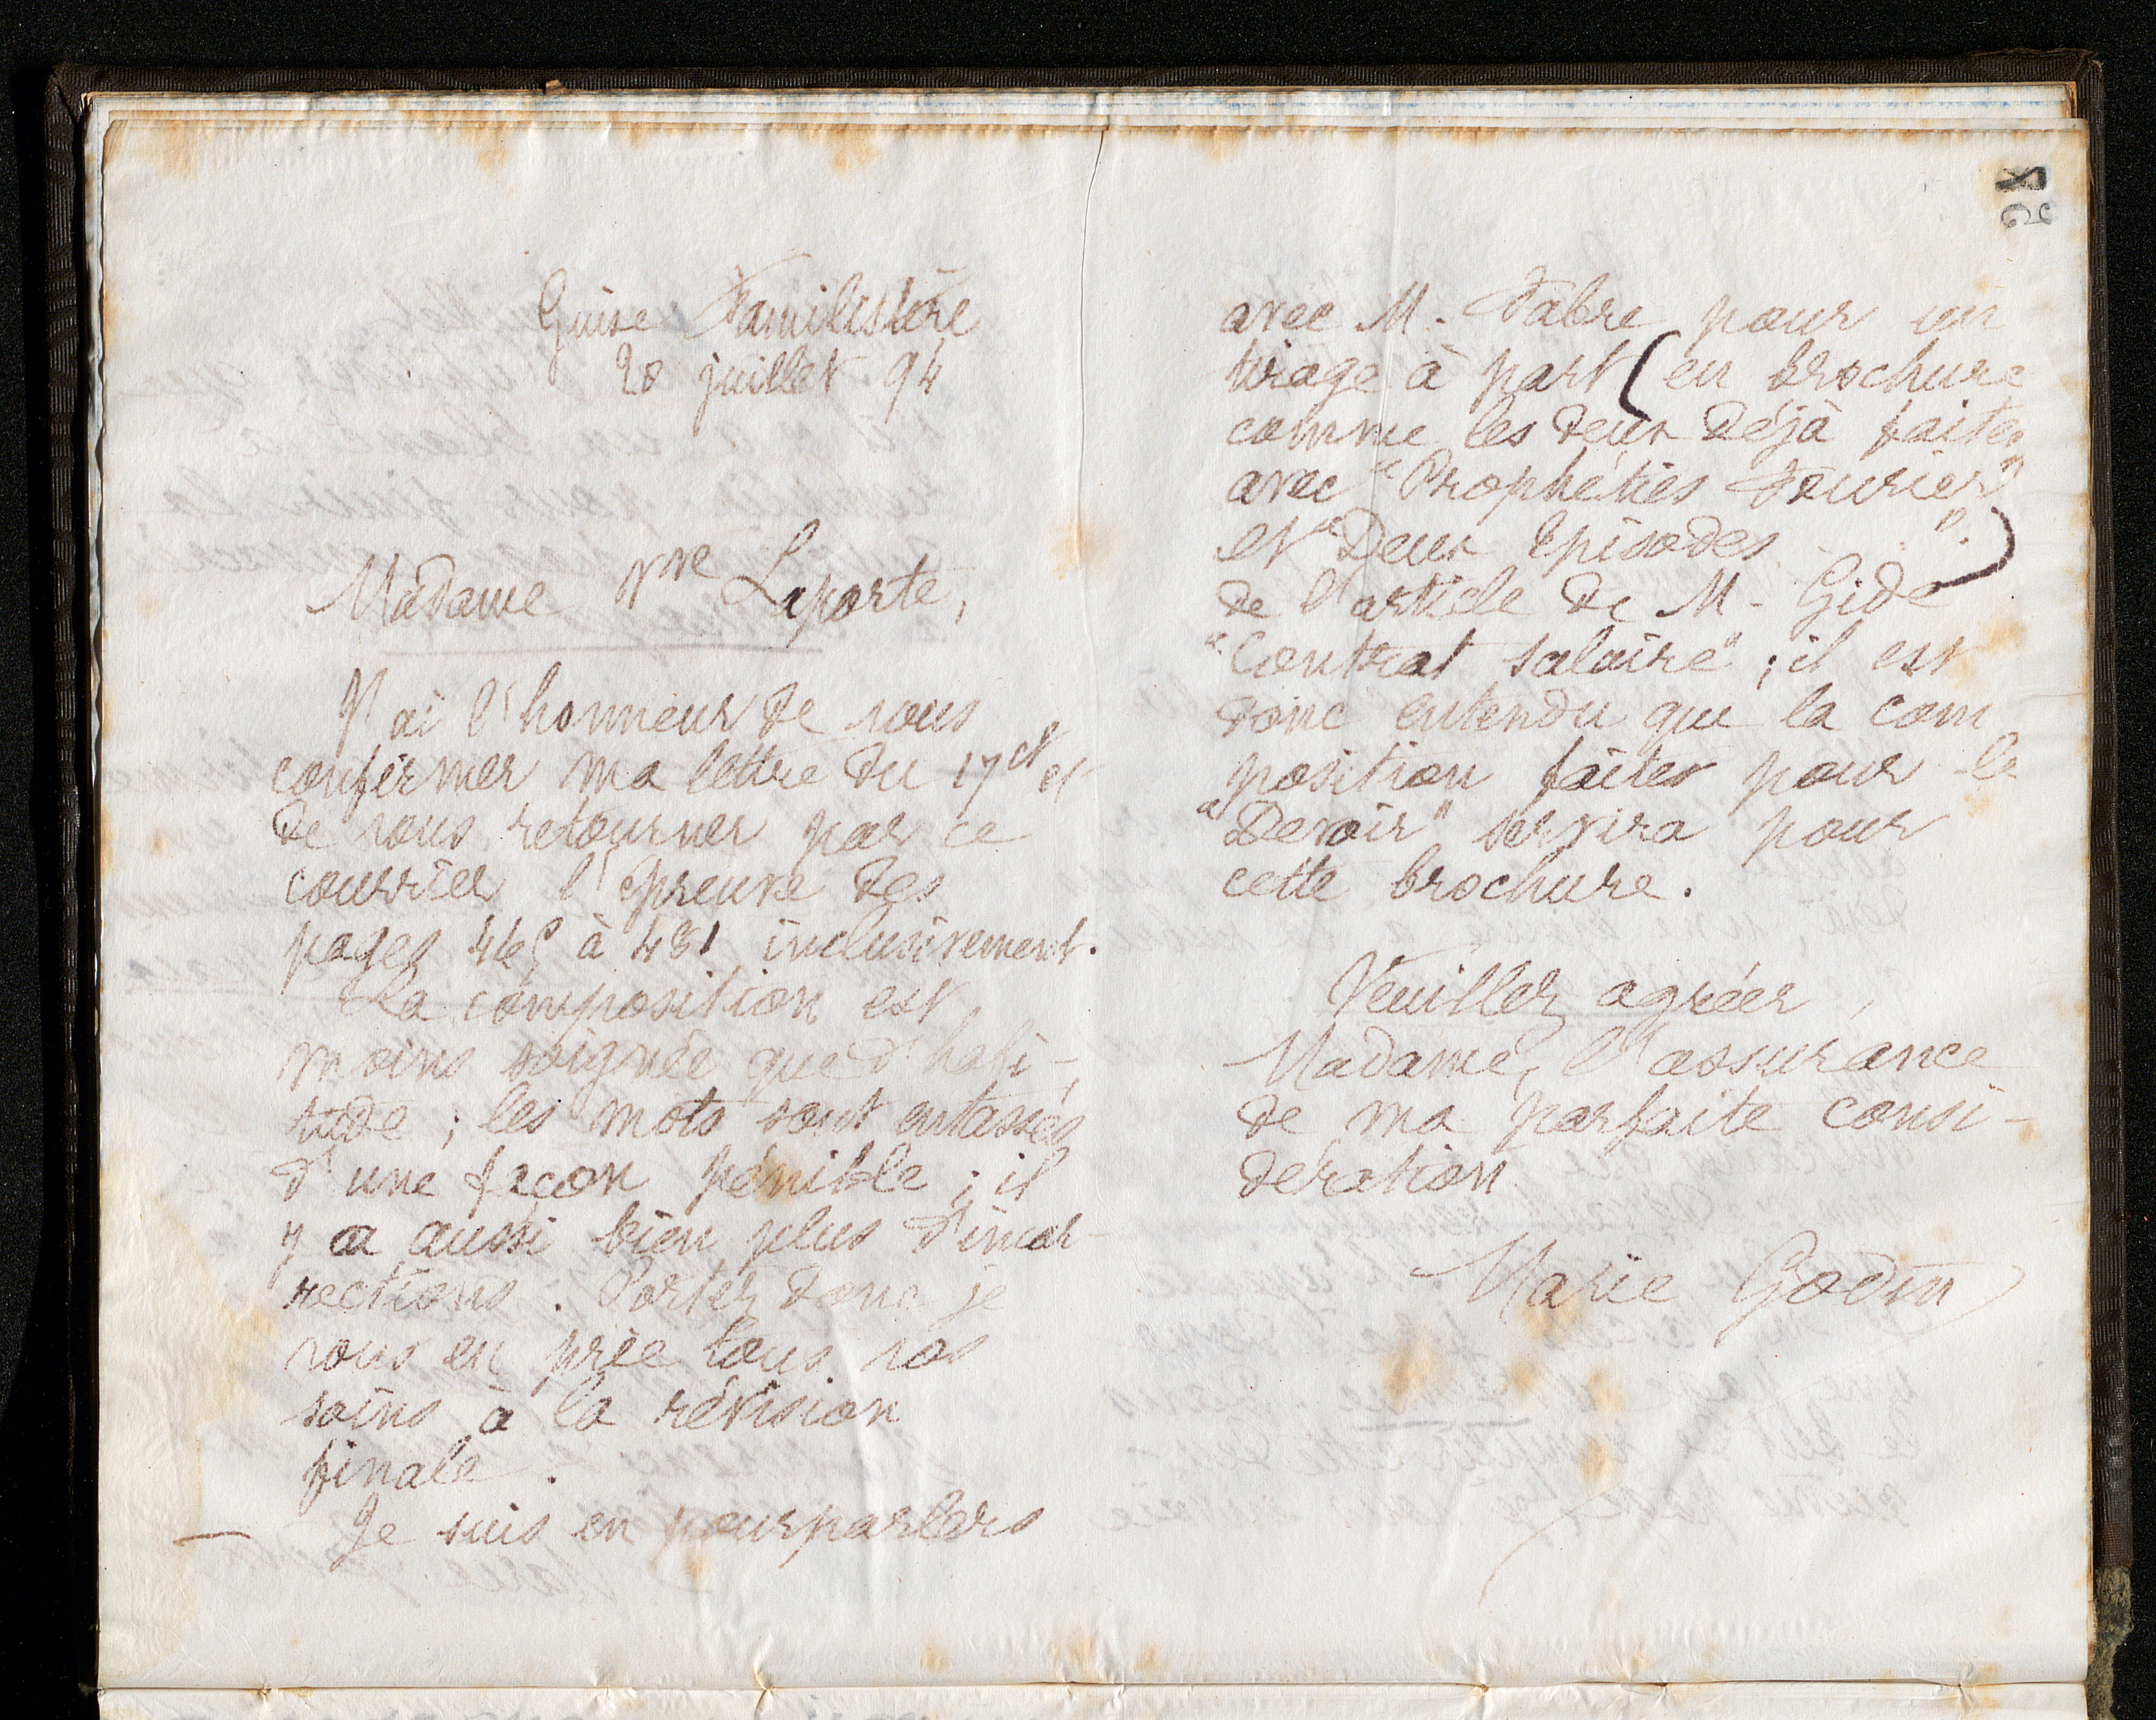 28
Guise Familistère
20 juillet 94
Madame Vve Laporte,
J'ai l'honneur de vous
confirmer ma lettre du 17 ct et
de vous retourner par ce
courrier l'épreuve des
pages 465 à 481 inclusivement.
La composition est
moins soignée que d'habi-
tude ; les mots sont entassés
d'une façon pénible ; il
y a aussi bien plus d'incor-
rections. Portez donc je
vous en prie tous vos
soins à la révision
finale.
Je suis en pourparlers
avec M. Fabre pour un
tirage à part (en brochure
comme les deux déjà faites
avec "Prophéties Fourier"
et "Deux épisodes ".)
de l'article de M. Gide
"Contrat salaire" ; il est
donc entendu que la com
position faites pour le
"Devoir" servira pour
cette brochure.
Veuillez agréer,
Madame, l'assurance
de ma parfaite consi-
dération
Marie Godin